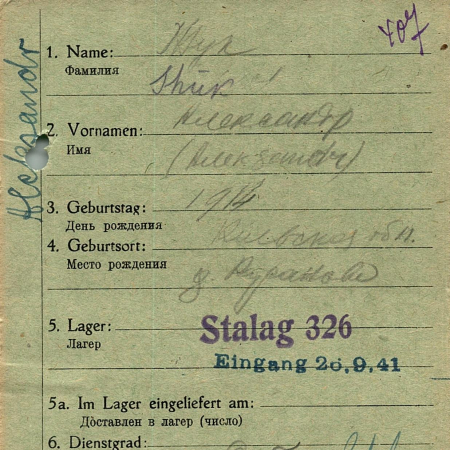 407
Aleksandr
1. Name: Жук
Фамилия
Shuk
2. Vornamen: Александр
Имя
(Александр)
3. Geburtstag: 1914
День рождения
4. Geburtsort: Киевская обл.
Место рождения
5. Lager: Stalag 326
Лагер
Eingang 26.9.41
5a. Im Lager eingeliefert am:
Доставлен в лагер (число)
6. Dienstgrad: